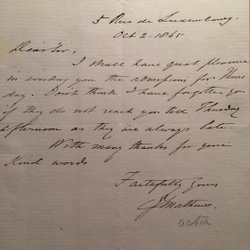 5 Rue de Luxembourg.
Oct 2. 1865
Dear Sir,
I shall have great pleasure
in sending you the admissions for Thurs
day. Don't think I have forgotten you
if they do not reach you till Thursday
afternoon as they are always late.
With many thanks for your
kind words
Faithfully Yours
Mathews.